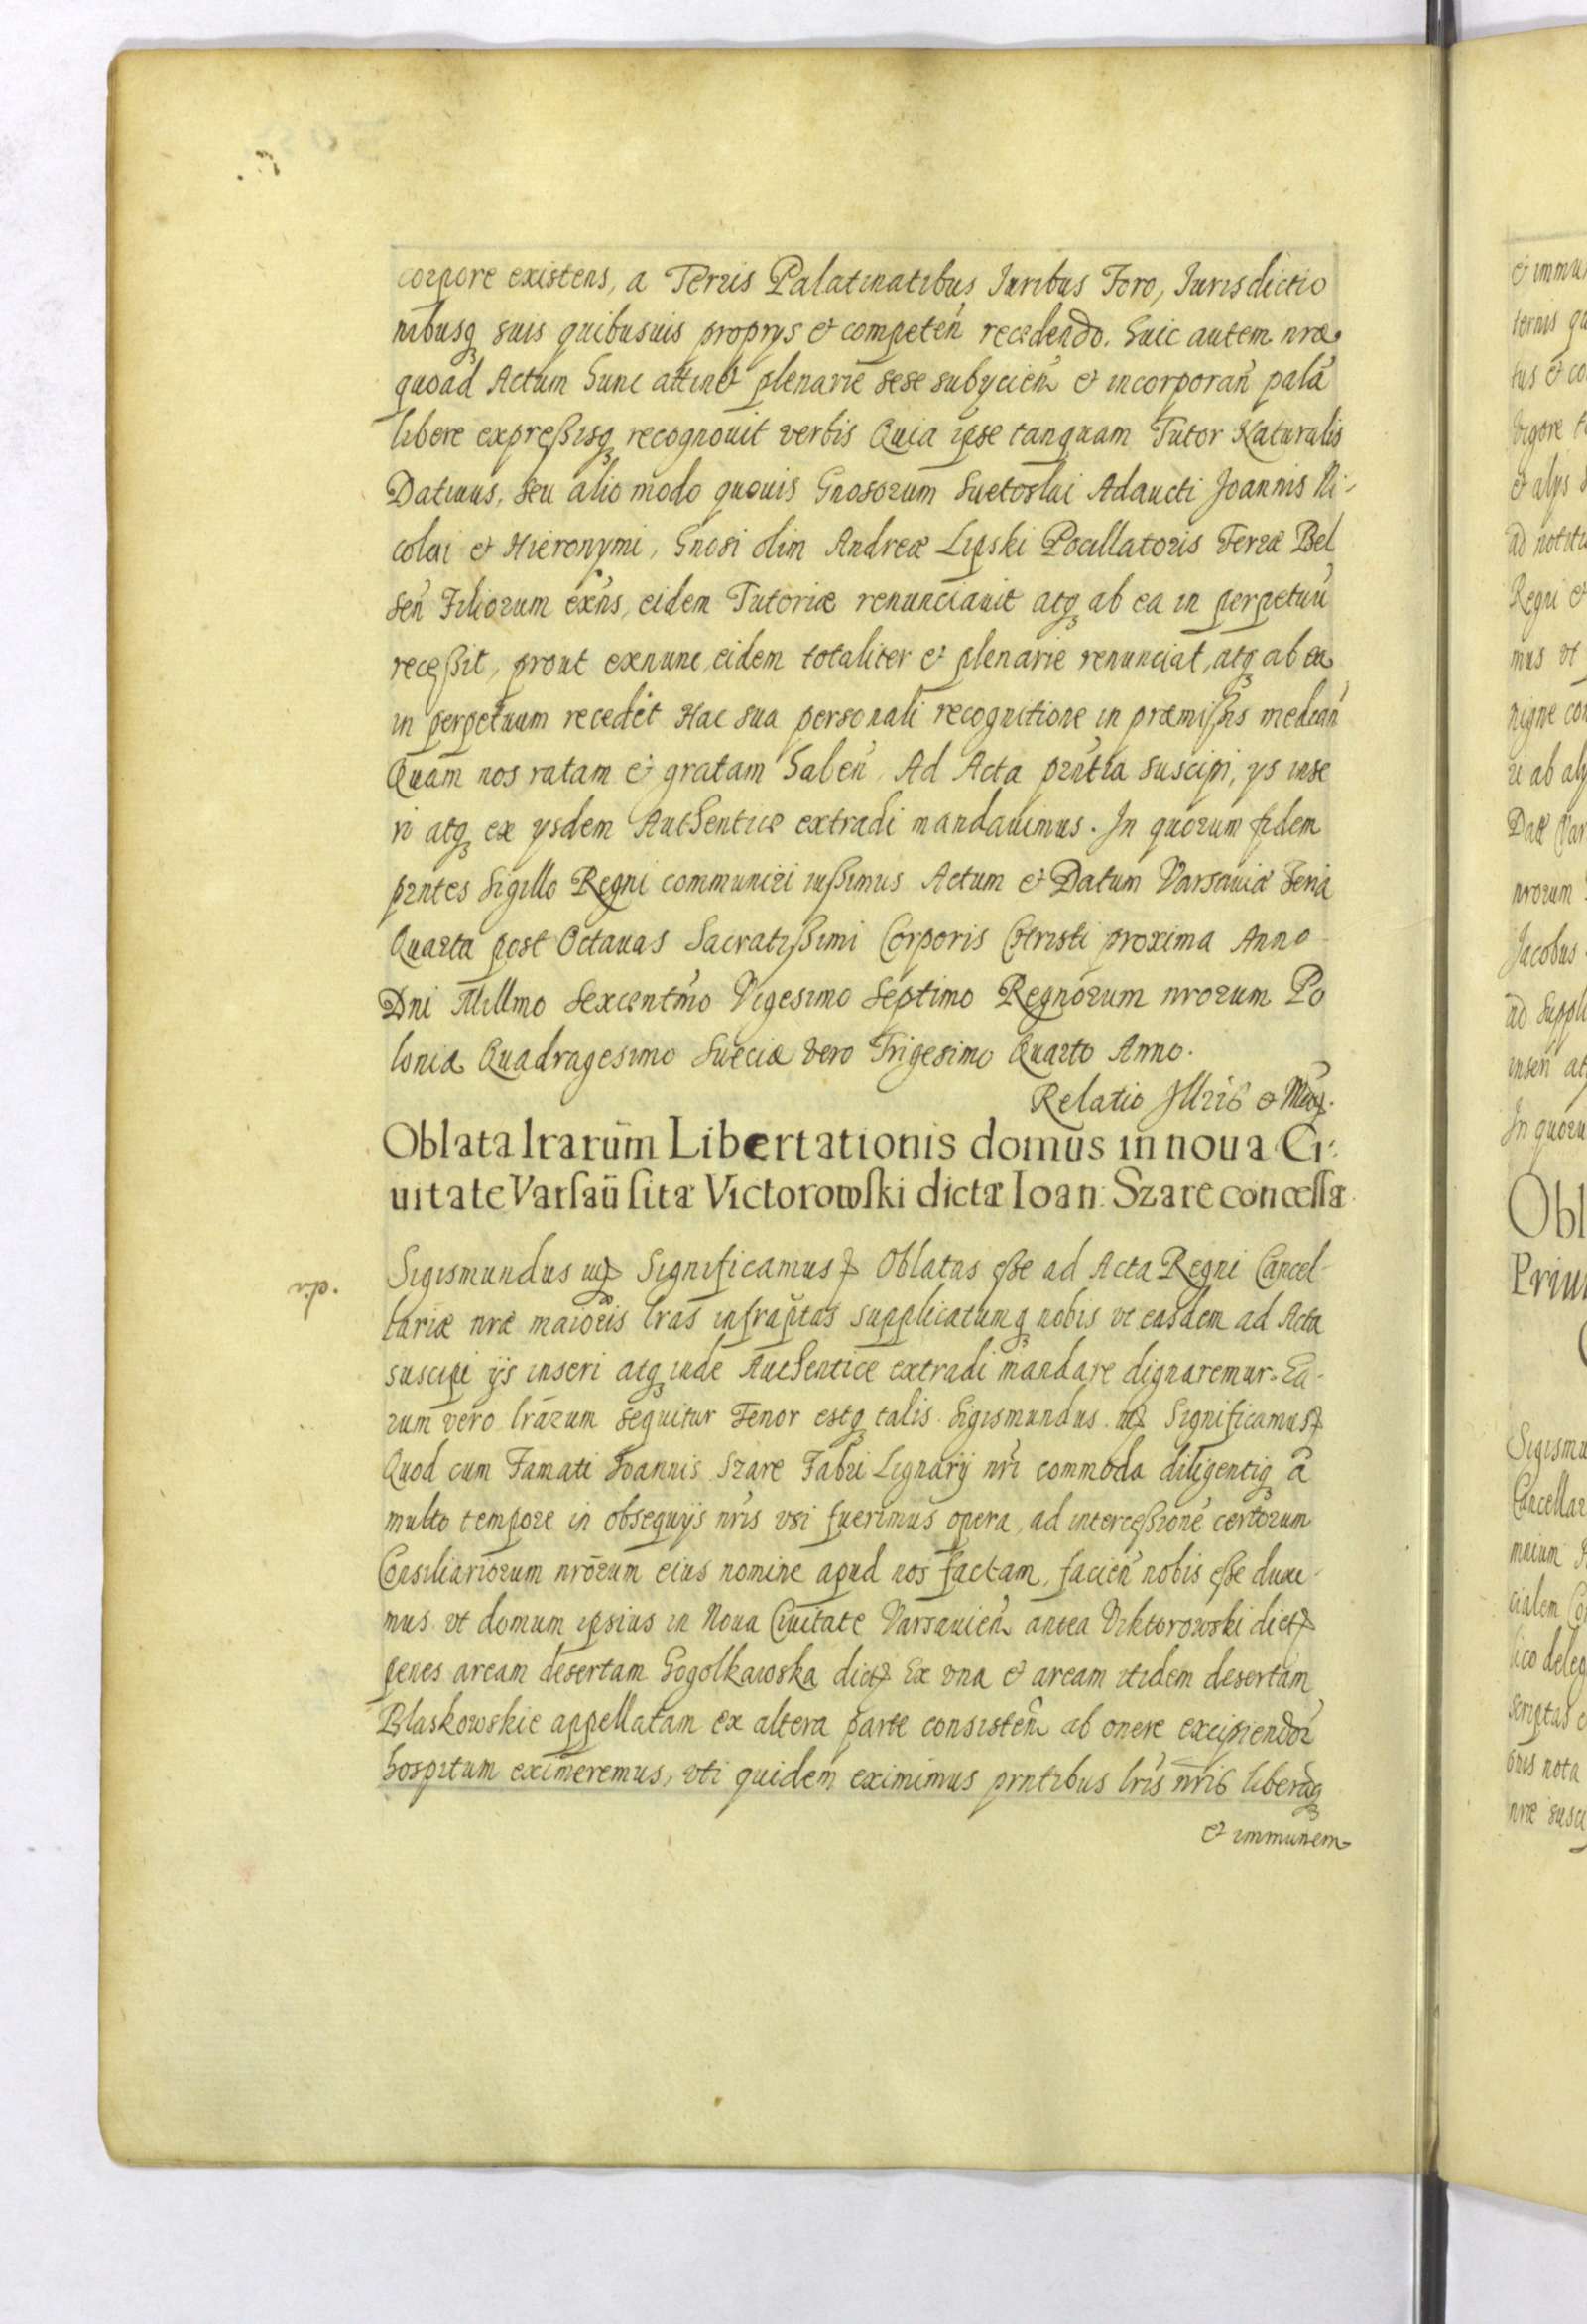 corpore existens, a Terris Palatinatibus Juribus Foro, Jurisdictio
nibusq suis quibusuis proprys et competeñ recedendo. huic autem nræ
quoad Actum hunc attinet plenarie sese subycieñ et incorporañ palã
libere expreßisq recognouit verbis Quia ipse tanquam Tutor Naturalis
Datiuus, seu alio modo quouis Gnosorum Suetoslai Adaucti Joannis Ni-
colai et Hieronymi, Gnosi olim Andreæ Lipski Pocillatoris Terræ Bel
señ Filiorum exñs, eidem Tutoriæ renunciauit atq ab ea in perpetuũ
receßit, prout exnunc eidem totaliter et plenarie renunciat, atq ab ea
in perpetuum recedit Hac sua personali recognitione in præmißis mediañ
Quam nos ratam et gratam habeñ. Ad Acta prñtia suscipi, ys inse
ri atq ex ysdem Authentice extradi mandauimus. In quorum fidem
prntes Sigillo Regni communiri iußimus Actum et Datum Varsauiæ Feria
Quarta post Octauas Sacratißimi Corporis Christi proxima Anno
Dni Millmo Sexcentmo Vigesimo Septimo Regnorum nrorum Po
loniæ Quadragesimo Sueciæ vero Trigesimo Quarto Anno.
Relatio Jllris et
Oblata lrarum Libertationis domus in noua Ci:
uitate Varsaũ sitæ Victorowski dictæ Ioan: Szare concessæ
Sigismundus Significamus Oblatas eße ad Acta Regni Cancel-
lariæ nræ maioris lras infraptas supplicatumq nobis vt easdem ad Acta
suscipi ijs inseri atq inde Authentice extradi mandare dignaremur. Ea-
rum vero lrarum sequitur Tenor estq talis. Sigismundus Significamus
Quod cum Famati Joannis Szare Fabri Lignarij nri commoda diligentiq a
multo tempore in obsequijs nris vsi fuerimus opera, ad interceßionẽ certorum
Consiliariorum nrorum eius nomine apud nos factam, facieñ nobis eße duxi-
mus vt domum ipsius in Noua Ciuitate Varsauieñ antea Viktorowski dict
penes aream desertam Gogolkawska dict Ex vna et aream itidem desertam
Blaskowskie appellatam ex altera parte consisteñ ab onere excipiendor
hospitum eximeremus, vti quidem eximimus prntibus lris nris liberãq
et immunem